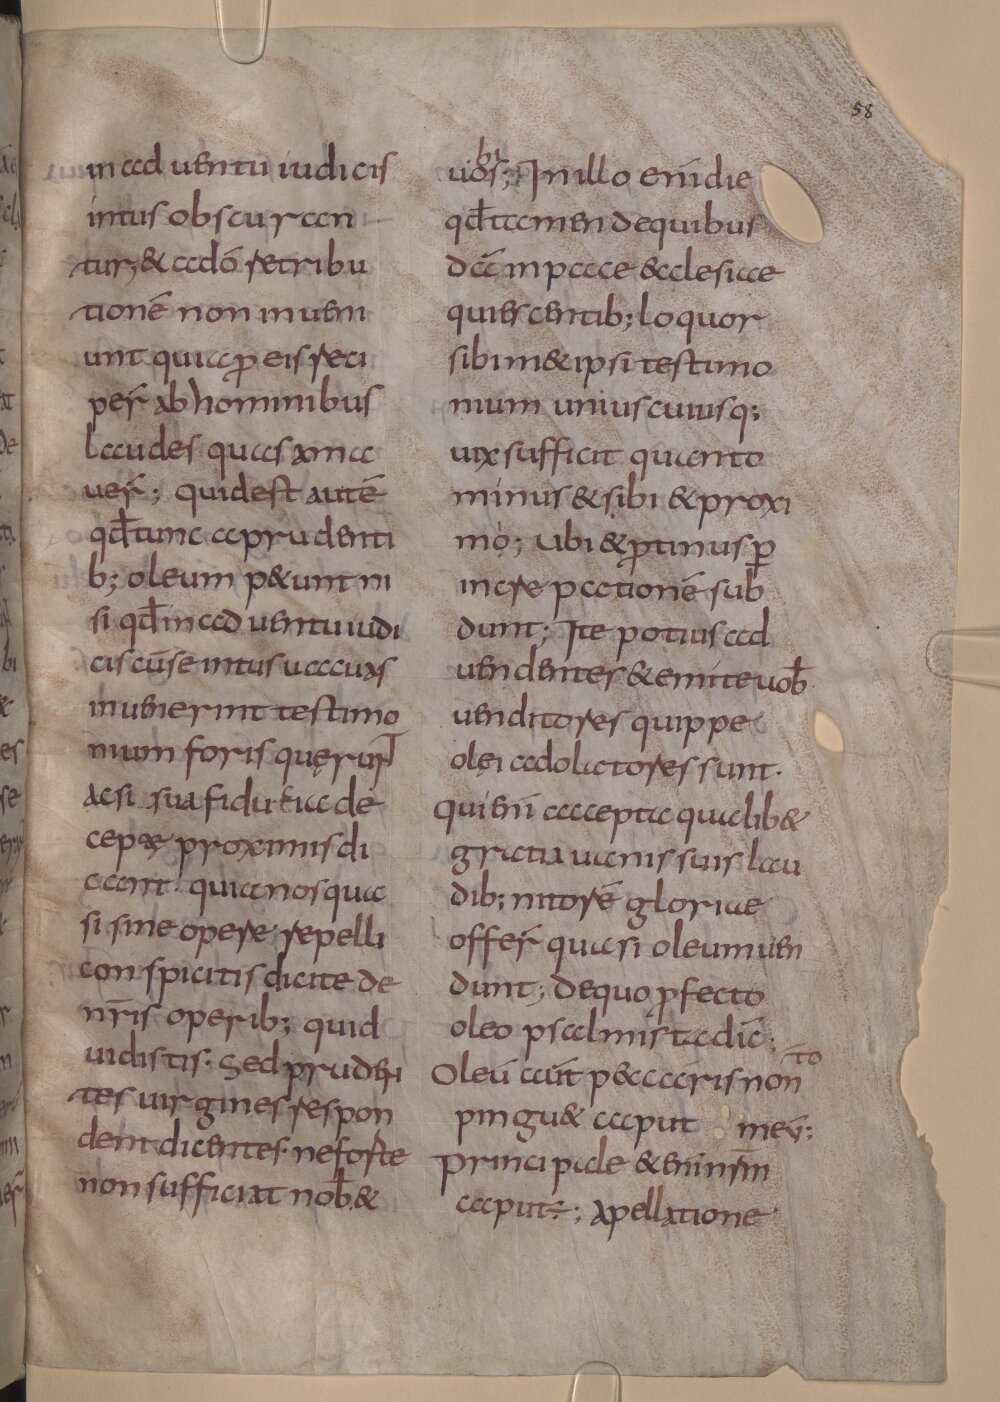 58
in aduentu iudicis
intus obscuran
tur; & addō retribu
tionē non inueni
unt quia ꝓ eis reci
per̄ ab hominibus
laudes quas ama
uer̄; quid est autē
qđ tunc a prudenti
b; oleum p&unt ni
si qđ in aduentu iudi
cis cū se intus uacuas
inuenerint testimo
nium foris quęrunt
ac si sua fiducia de
ceptae proximis di
cant· quia nos qua
si sine opere repelli
conspicitis dicite de
nr̄is operib; quid
uidistis· Sed pruden
tes uirgines respon
dent dicentes· ne forte
non sufficiat nob̄ &
uobis; In illo enī die
qđ tamen de quibus
dā in pace &clesiae
quiescentib; loquor
sibim&ipsi testimo
nium uniuscuiusq;
uix sufficit quanto
minus & sibi & proxi
mo; ubi & ꝓtinus ꝑ
increpationē sub
dunt; Ite potius ad
uendentes & emite uob̄
uenditores quippe
olei adolatores sunt·
qui enī accepta qualib&
gratia uanis suis lau
dib; nitorē gloriae
offer̄ quasi oleum uen
dunt; de quo ꝓfecto
oleo psalmista dic̄;
Oleū aūt peccatoris non
pingu& caput meū;
Principale & enim nr̄m
caput ÷; apellatione